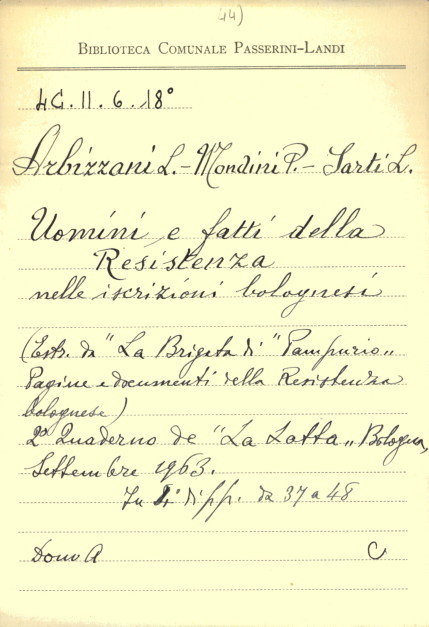 44)
BIBLIOTECA COMUNALE PASSERINI-LANDI
4C. II. 6. 18°
Arbizzani L. - Mondini P. - Sarti L.
Uomini e fatti della
Resistenza
nelle iscrizioni bolognesi
(Estr. da "La Brigata di "Pampurio„
Pagine e documenti della Resistenza
bolognese)
2° Quaderno de "La Lotta„ Bologna,
Settembre 1963.
In 4° di pp. da 37 a 48
Dono A C